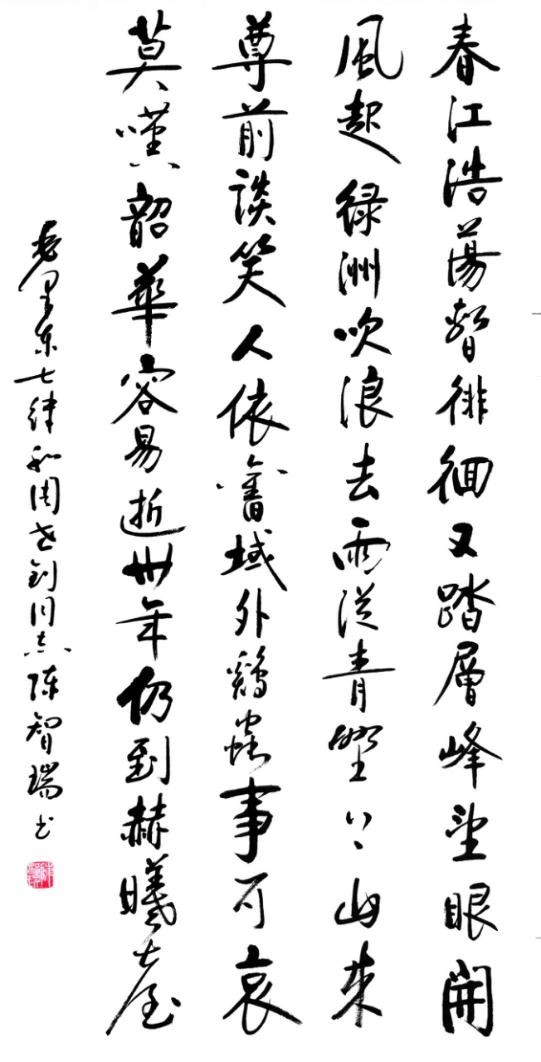 春江浩蕩暫徘徊又踏層峰望眼開
風起緑洲吹浪去雨從青壄上山来
尊前談笑人依舊域外鷄蟲事可哀
莫嘆韶華容易逝卅年仍到赫曦臺
毛澤东七律和周世釗同志陳智瑞书